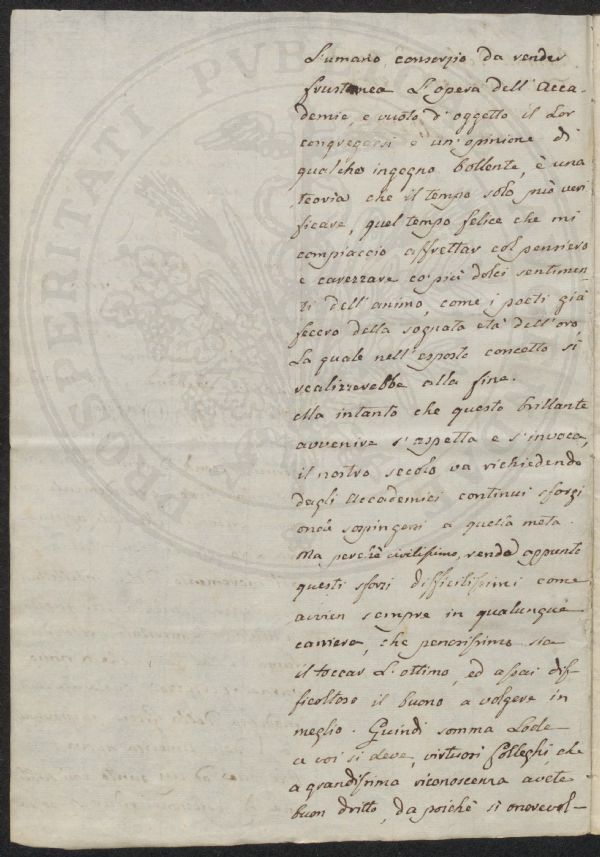 L'umano consorzio da render
frustanea L'opera dell'Acca-
demie, e vuoto d'oggetto il Lor
congregarsi è un'opinione di
qualche ingegno bollente, è una
teoria che il tempo solo può veri
ficare, quel tempo felice che mi
compiaccio affrettar col pensiero
e carezzare co' più dolci sentimen
ti dell'animo, come i poeti già
fecero della sognata età dell'oro,
La quale nell'esposto concetto si
realizzerebbe alla fine.
Ma intanto che questo brillante
avvenire s'aspetta e s'invoca,
il nostro secolo va richiedendo
dagli Accademici continui sforzi
onde sospingersi a quella meta.
Ma perchè civilissimo, rende appunto
questi sforzi difficilissimi come
avvien sempre in qualunque
carriera, che penosissimo sia
il toccar L'ottimo, ed assai dif-
ficoltoso il buono a volgere in
meglio. Quindi somma Lode
a voi si deve, virtuosi Colleghi, che
a grandissima riconoscenza avete
buon dritto, da poichè sì onorevol-